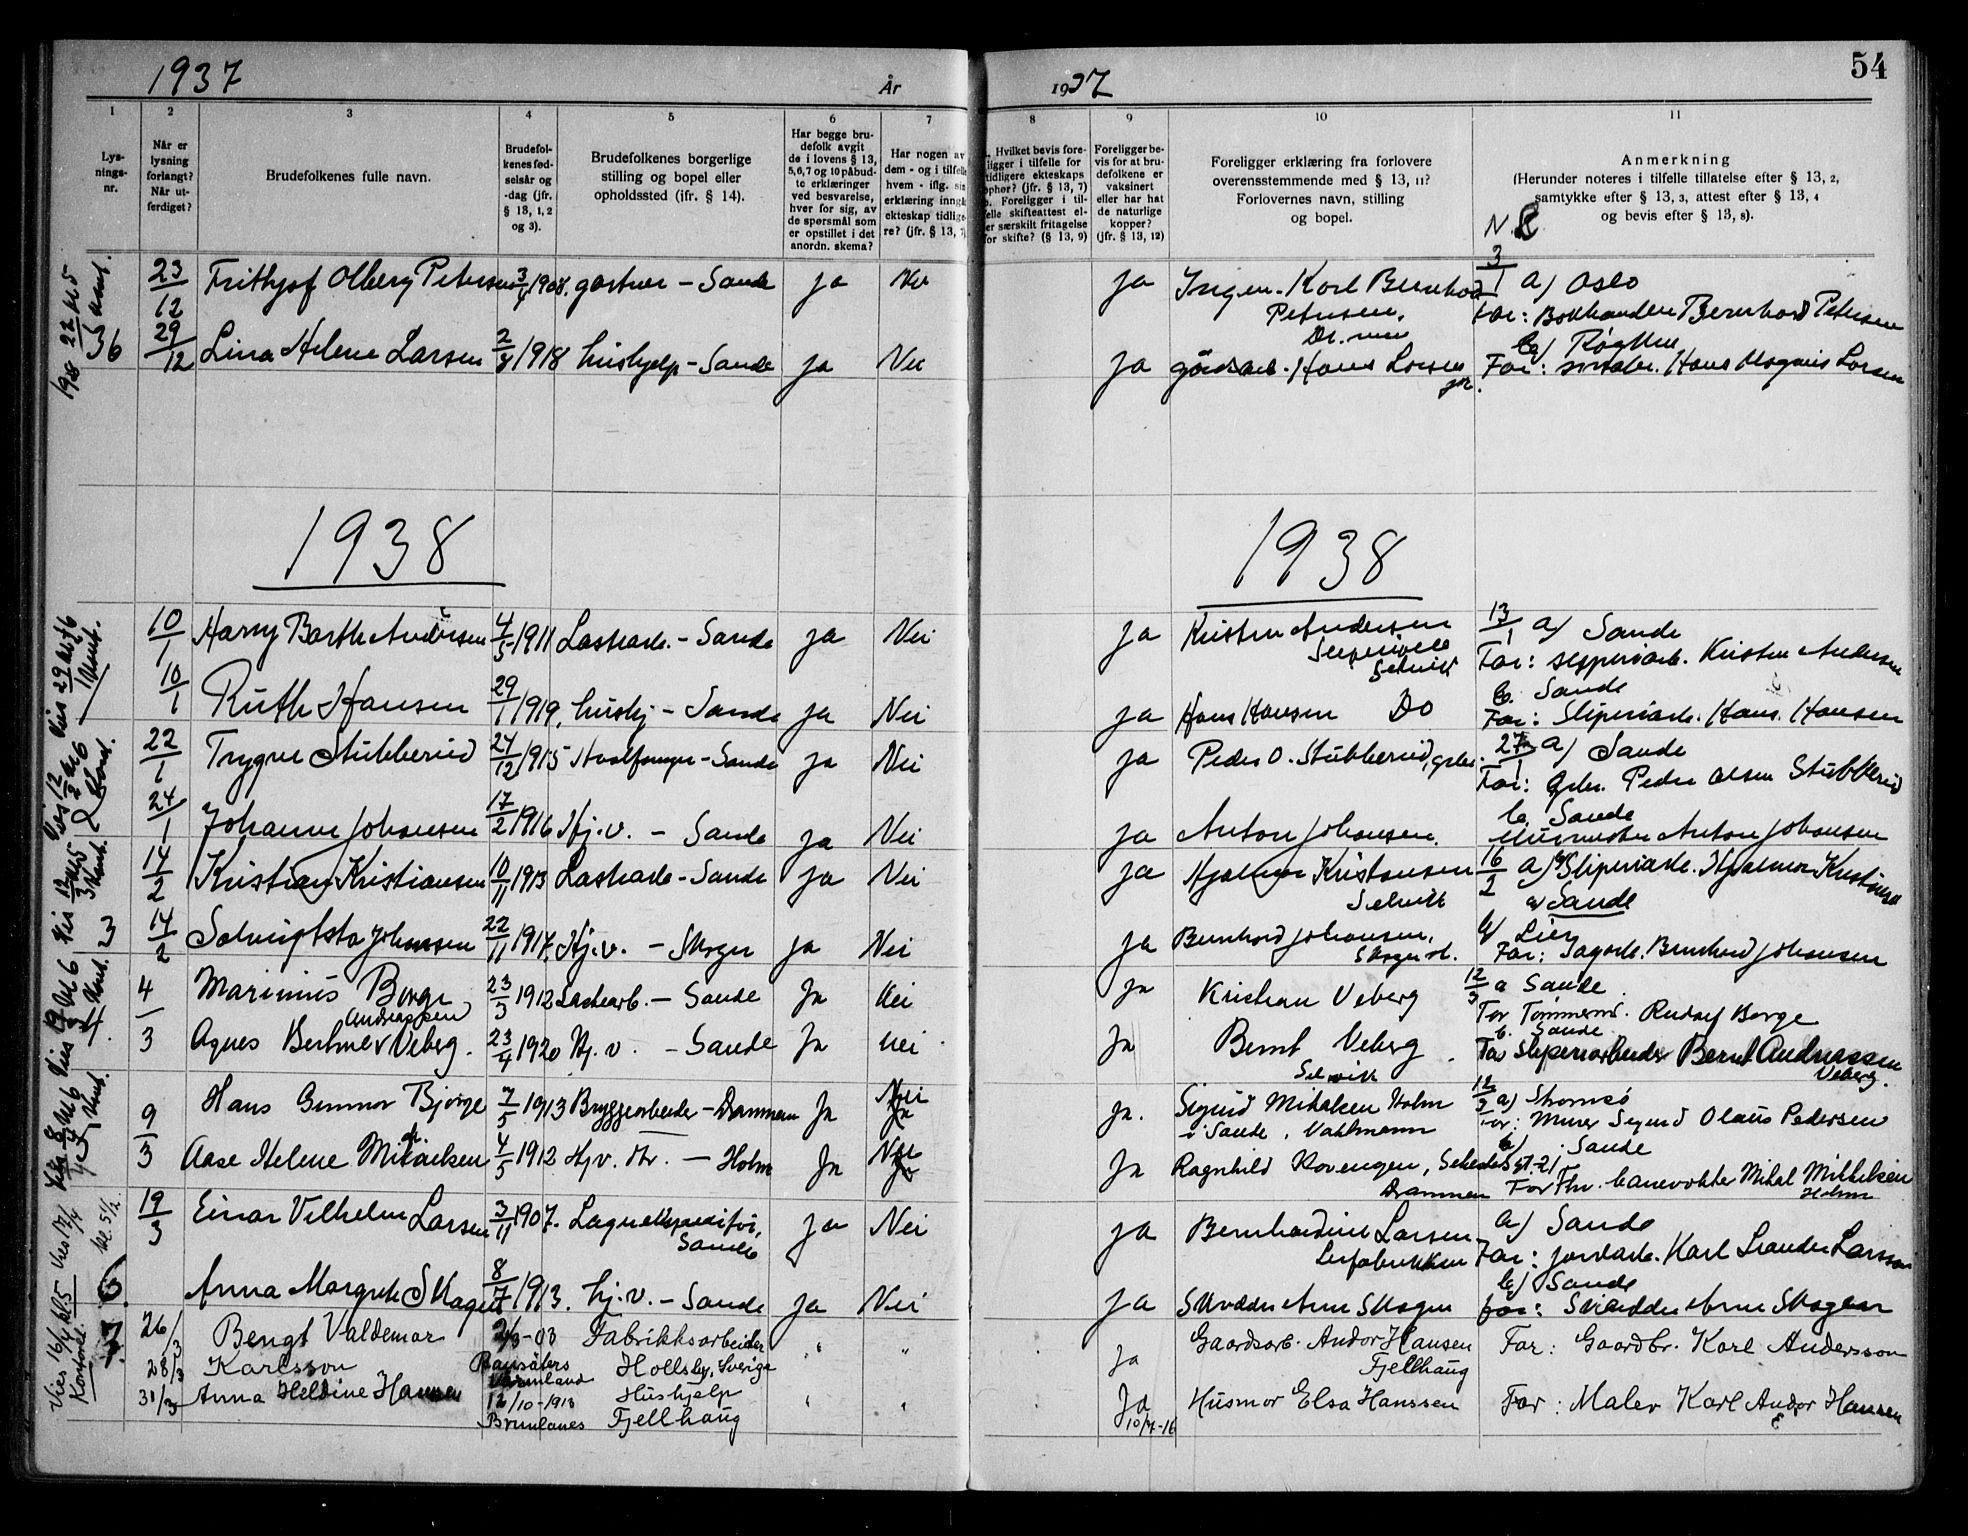 1937
År
1937
54
1
2
3
4
5
6
7
8
9
10
11
Lys-
nings-
nr.
Når er
lysning
forlangt?
Når ut-
ferdiget?
Brudefolkenes fulle navn.
Brudefol-
kenes fød-
selsår og
-dag (jfr.
§ 13, 1, 2
og 3).
Brudefolkenes borgerlige
stilling og bopel eller
opholdssted (jfr. § 14).
Har begge bru-
defolk avgit
de i lovens § 13,
5,6,7 og 10 påbud-
te erklæringer
ved besvarelse,
hver for sig, av
de spørsmål som
er opstillet i det
anordn. skema?
Har nogen av
dem - og i tilfelle
hvem - iflg. sin
erklæring inngå
ekteskap tidlige-
re? (jfr. § 13, 7)
Hvilket bevis fore-
ligger i tilfelle for
tidligere ekteskaps
ophør? (jfr. § 13, 7)
Foreligger i til-
felle skifteattest el-
er særskilt fritagelse
for skifte? (§ 13, 9)
Foreligger be-
vis for at bru-
defolkene er
vaksinert
eller har hat
de naturlige
kopper?
(jfr. § 13, 12)
Foreligger erklæring fra forlovere
overensstemmende med § 13, 11?
Forlovernes navn, stilling
og bopel.
Anmerkning
(Herunder noteres i tilfelle tillatelse efter § 13, 2,
samtykke efter § 13, 3, attest efter § 13, 4
og bevis efter § 13, 8).
36
23/12 Frithjof Olberg Petersen 3/4 1908. gartner - Sande ja Nei
ja Ingen. Karl Bernhard 3/1 a) Oslo
Petersen, Far: Bokhandler Bernhard Petersen
29/12 Lina Helene Larsen 2/8 1918 hushjelp - Sande ja Nei
ja Hans Larsen Far: Hans Magnus Larsen
1938
1938
10/1 Harry Barth Andersen 4/5 1911 Lastearb. - Sande ja Nei
ja Kristen Andersen 13/1 a) Sande
Selvik Far: sliperiarb. Kristen Andersen
10/1 Ruth Hansen 29/1 1919. hushj - Sande ja Nei
b. Sande
ja Hans Hansen Do Far: Sliperiarb. Hans Hansen
22/1 Trygve Stubberud 24/12 1915 Hvalfanger - Sande ja Nei
ja Peder O. Stubberud, grbr. 27/1 a) Sande
Far: Grbr. Peder Olsen Stubberud
24/1 Johanne Johansen 17/2 1916 Hj.v. - Sande ja Nei
b. Sande
ja Anton Johansen. Murmester Anton Johansen
14/2 Kristian Kristiansen 10/11 1913 Lastearb - Sande ja Nei
ja Hjalmar Kristiansen 16/2 a) Sliperiarb. Hjalmar Kristiansen
Selvik Sande
3
14/2 Solveig Asta Johansen 22/11 1917. Hj.v. - Skoger ja Nei
ja Bernhard Johansen, b) Lier
Far: Sagarb. Bernhard Johansen
4/3 Marinius Borge 23/5 1912 Lastearb. - Sande Ja Nei
Andreassen
ja Kristian Veberg 12/3 a Sande
Far Tømmerm. Rudolf Borge
Agnes Berthner Veberg. 23/4 1920 Hj. v. - Sande Ja Nei
b. Sande
Ja Bernt Veberg Far Sliperiarbeider Bernt Andreassen
Selvik Veberg.
9/3 Hans Gunnar Bjørge 7/5 1913 Bryggearbeider - Drammen Ja Nei
ja. Sigurd Mikalsen Holm 12/3 a) Strømsø
i Sande, Vaktmann Far: Murer Sigurd Olaus Pedersen
Aase Helene Mikaelsen 4/5 1912 Hjv. - Holm Ja Nei
b) Sande
Ja Ragnhild Rovengen,
Drammen Far Fhv. banevokter Mikal Mikkelsen
Holm
19/3 Einar Vilhelm Larsen 3/11 1907. Lagerekspeditør, ja Nei
Sande
a) Sande
ja Bernhardine Larsen Far: jordarb. Karl Leander Larsson
6.
Anna Margrete Skagen 8/7 1913. hj.v. - Sande ja Nei
b) Sande
ja Skredder Arne Skagen far: Skredder Arne Skagen
7.
26/3 Bengt Valdemar 2/3-03 Fabrikksarbeider
28/3 Karlsson Ransäters Hollsby, Sverige
Värmland
ja Gaardsarb. Andor Hansen Far: Gaardbr. Karl Andersson
Fjellhaug
31/3 Anna Heldine Hansen 12/10-1913 Hushjelp
Brunlanes Fjellhaug
Ja Husmor Elsa Hanssen Far: Maler Karl Andor Hansen
10/7-16